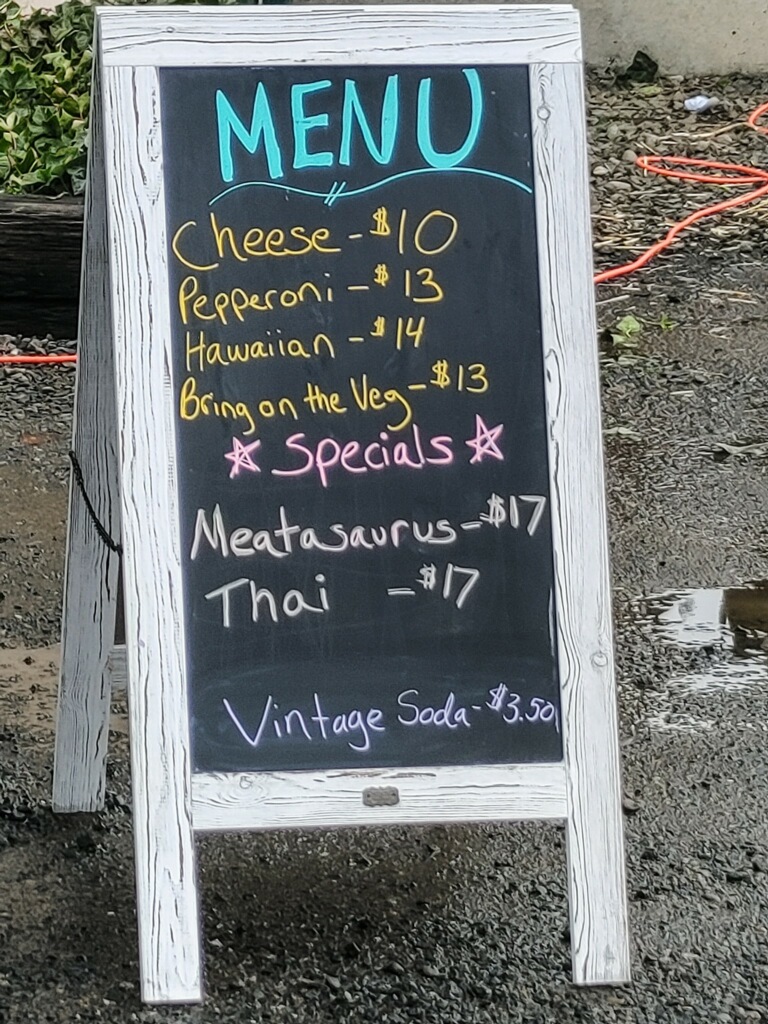 MENU
Cheese - $10
Pepperoni - $13
Hawaiian - $14
Bring on the Veg - $13
Specials
Meatasaurus - $17
Thai - $17
Vintage Soda - $3.50